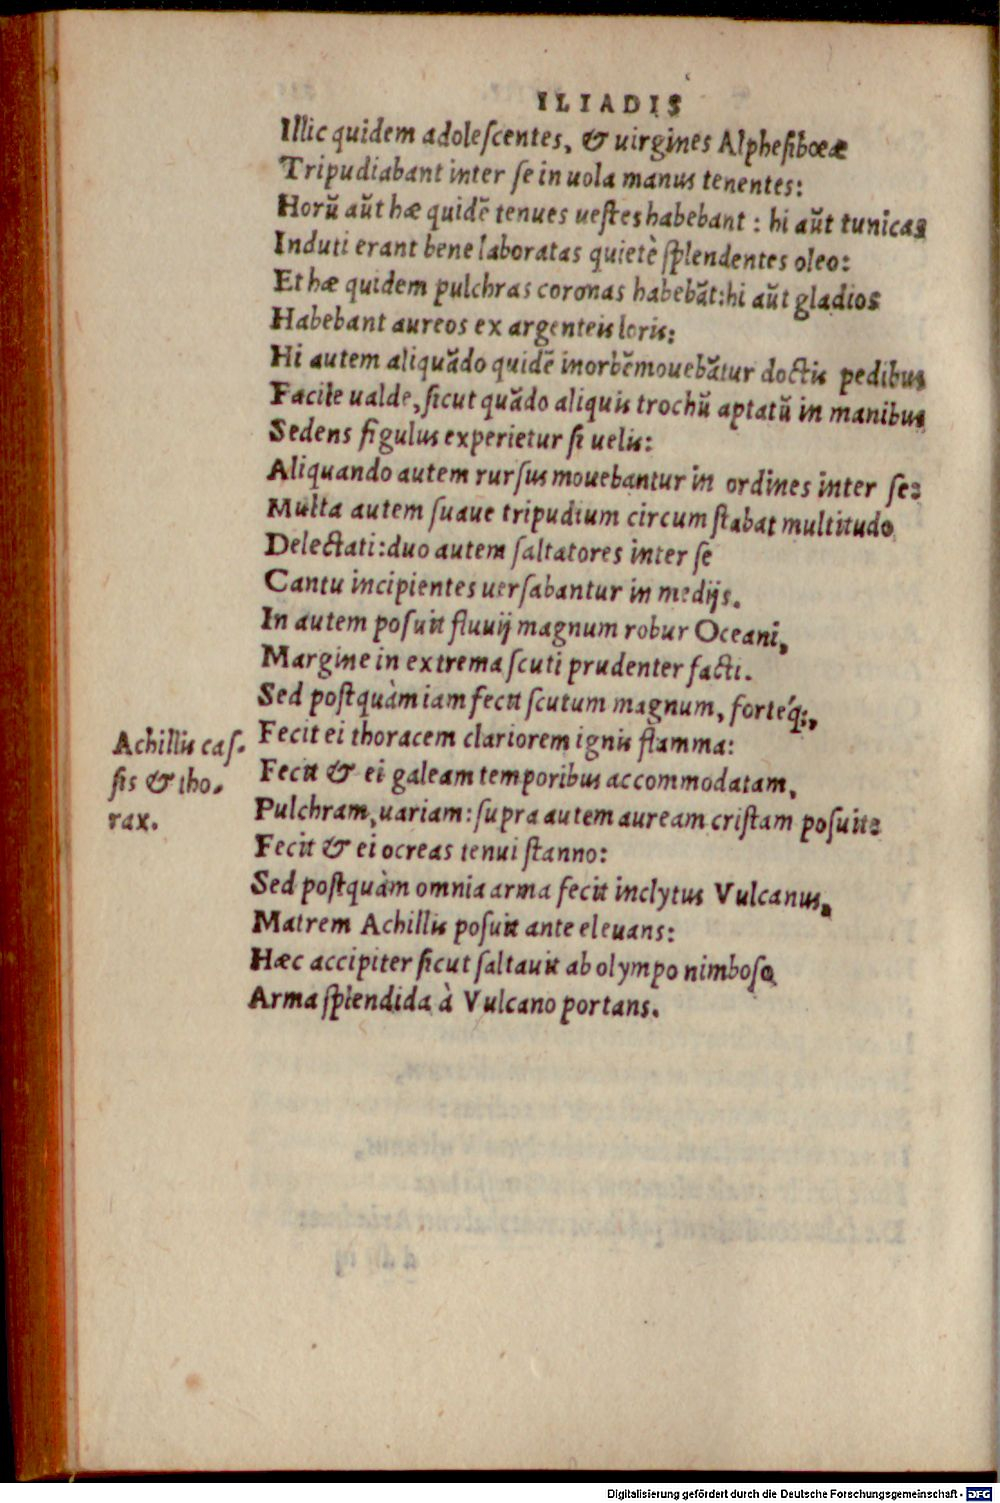 ILIADIS
Illic quidem adolescentes, & uirgines Alphesibœæ
Tripudiabant inter se in uola manus tenentes:
Horũ aũt hæ quidẽ tenues uestes habebant : hi aũt tunicas
Induti erant bene laboratas quietè splendentes oleo:
Et hæ quidem pulchras coronas habebãt: hi aũt gladios
Habebant aureos ex argenteis loris:
Hi autem aliquãdo quidẽ in orbẽ mouebãtur doctis pedibus
Facile ualde, sicut quãdo aliquis trochũ aptatũ in manibus
Sedens figulus experietur si uelis:
Aliquando autem rursus mouebantur in ordines inter se:
Multa autem suaue tripudium circumstabat multitudo
Delectati: duo autem saltatores inter se
Cantu incipientes uersabantur in medijs.
In autem posuit fluuij magnum robur Oceani,
Margine in extrema scuti prudenter facti.
Sed postquàm iam fecit scutum magnum, forteq́;,
Achillis cas-
Fecit ei thoracem clariorem ignis flamma:
sis & tho-
Fecit & ei galeam temporibus accommodatam,
rax.
Pulchram, uariam: supra autem auream cristam posuit:
Fecit & ei ocreas tenui stanno:
Sed postquàm omnia arma fecit inclytus Vulcanus,
Matrem Achillis posuit ante eleuans:
Hæc accipiter sicut saltauit ab olympo nimboso
Arma splendida à Vulcano portans.
Digitalisierung gefördert durch die Deutsche Forschungsgemeinschaft - DFG